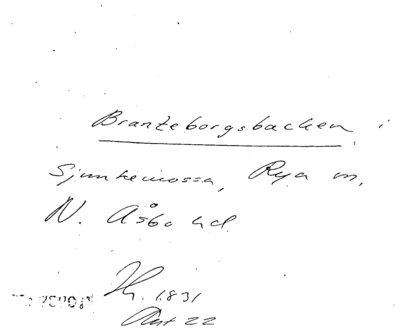 Branteborgsbacken i
Sjunkemossa, Rya sn,
N. Åsbo hd
1831
22